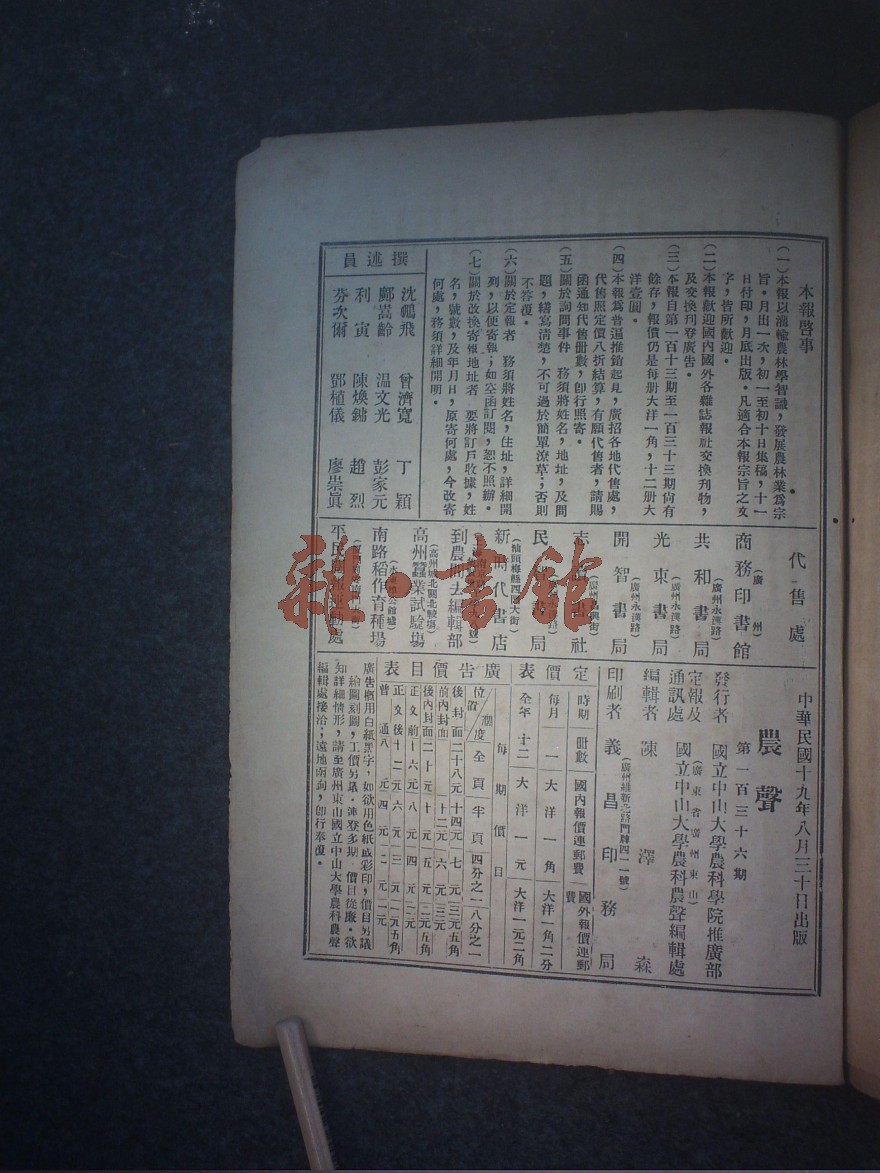 本報啓事
(一)本報以灌輸農林學智識，發展農林業爲宗
旨。月出一次，初一至初十日集稿，十一
日付印，月底出版。凡適合本報宗旨之文
字，皆所歡迎。
(二)本報歡迎國內國外各雜誌報社交換刊物，
及交換刊登廣告。
(三)本報自第一百十三期至一百三十三期尙有
餘存，報價仍是每册大洋一角，十二册大
洋壹圓。
(四)本報爲普遍推銷起見，廣招各地代售處，
代售照定價八折結算，有願代售者，請賜
函通知代售册數，卽行照寄。
(五)關於詢問事件　務須將姓名，地址，及問
題，繕寫清楚，不可過於簡單潦草；否則
不答覆。
(六)關於定報者　務須將姓名，住址，詳細開
列，以便寄報；如空函訂閱，恕不照辦。
(七)關於改換寄報地址者　要將訂戶收據，姓
名，號數，及年月日，原寄何處，今改寄
何處，務須詳細開明。
撰述員
沈鵬飛　曾濟寬　丁穎
鄺嵩齡　温文光　彭家元
利寅　陳煥鏞　趙烈
芬次爾　鄧植儀　廖崇眞
代售處
商務印書館(廣州)
共和書局(廣州永漢路)
光東書局(廣州永漢路)
開智書局
社
民 書局
新時代書店(汕頭梅縣四 大街)
到農間去編輯部
高州蠶業試騐塲(高州城北關北較塲)
南路稻作育種場
平民 動處
中華民國十九年八月三十日出版
農聲
第一百三十六期
發行者　國立中山大學農科學院推廣部
(廣東省廣州東山)
定報及通訊處　國立中山大學農科農聲編輯處
編輯者　陳澤森
印刷者　義昌印務局
(廣州維新北路門牌四一一號)
定價表
時期　册數　國內報價連郵費　國外報價連郵費
每月　一　大洋一角　大洋一角二分
全年　十二　大洋一元　大洋一元二角
廣告價目表
位置／幅度　每期價目
全頁　半頁　四分之一　八分之一
後封面　二十八元　十四元　七元　三元五角
前內封面　十二元　六元　三元
後內封面　二十元　十元　五元　二元五角
正文前　十六元　八元　四元　二元
正文後　十二元　六元　三元　一元五角
普通　八元　四元　二元　一元
廣告概用白紙黑字，如欲用色紙或彩印，價目另議
繪圖刻圖，工價另議。連登多期，價目從廉。欲
知詳細情形，請至廣州東山國立中山大學農科農聲
編輯處接洽；遠地函詢，卽行奉覆。
雜·書館